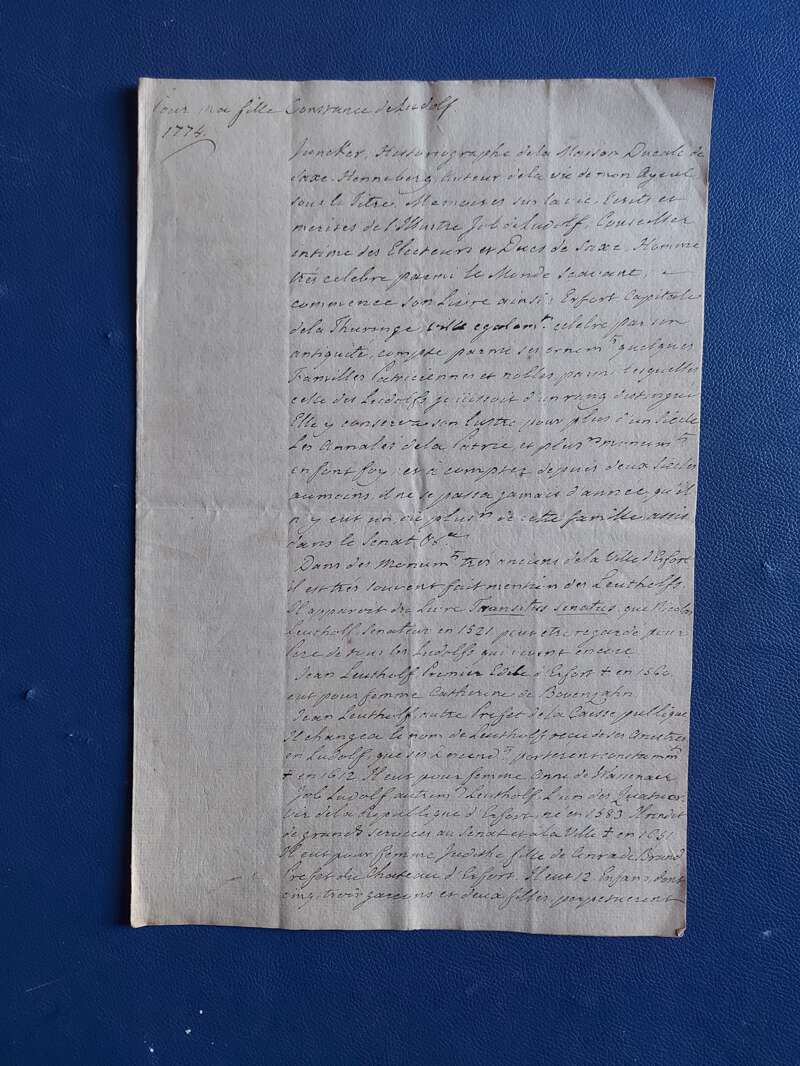 Pour ma fille Constance de Ludolf
1774.
Juncker, Historiographe de la Maison Ducale de
Saxe-Henneberg, Auteur de la vie de mon Ayeul
sous le titre, Memoires sur la vie, Ecrits et
merites de l'Illustre Job de Ludolf, Conseiller
intime des Electeurs et Ducs de Saxe, Homme
trés celebre parmi le Monde scavant,
commence son Livre ainsi: Erfort Capitale
de la Thuringe, ville egalemt. celebre par son
antiquité, compte parmi ses ornemts. quelques
Familles Patriciennes et nobles parmi lesquelles
celle des Ludolfs jouissoit d'un rang distingué
Elle y conserva son lustre pour plus d'un Siécle
Les Annales de la Patrie, et plusrs monumts.
en font foy; et à compter depuis deux Siécles
au moins il ne se passa jamais d'année, qu'il
n'y eut un ou plusrs de cette famille assis
dans le Senat &c.
Dans des Monumts. trés anciens de la Ville d'Erfort
il est trés souvent fait mention des Leutholfs.
Il apparoit du Livre Transitus Senatus, que Nicolas
Leutholf, Senateur en 1521 peut etre regardé pour
Pere de tous les Ludolfs qui vivent encore
Jean Leutholf Premier Edile d'Erfort † en 1560
eut pour femme Catherine de
Jean Leutholf, autre Prefet de la Caisse publique
Il changea le nom de Leutholf recu de ses Ancetres
en Ludolf, que ses Descendts. porterent constamm.
† en 1612. Il eut pour femme Anne de
Job Ludolf autremt. Leutholf, L'un des Quatuor
vir de la Republique d'Erfort, né en 1583. Il rendit
de grands services au Senat et a la Ville † en 1651
Il eut pour femme Judithe fille de Conrade Brand
Prefet du Chateau d'Erfort. Il eut 12 Enfans dont
cinq, trois garcons et deux filles, perpetuerent